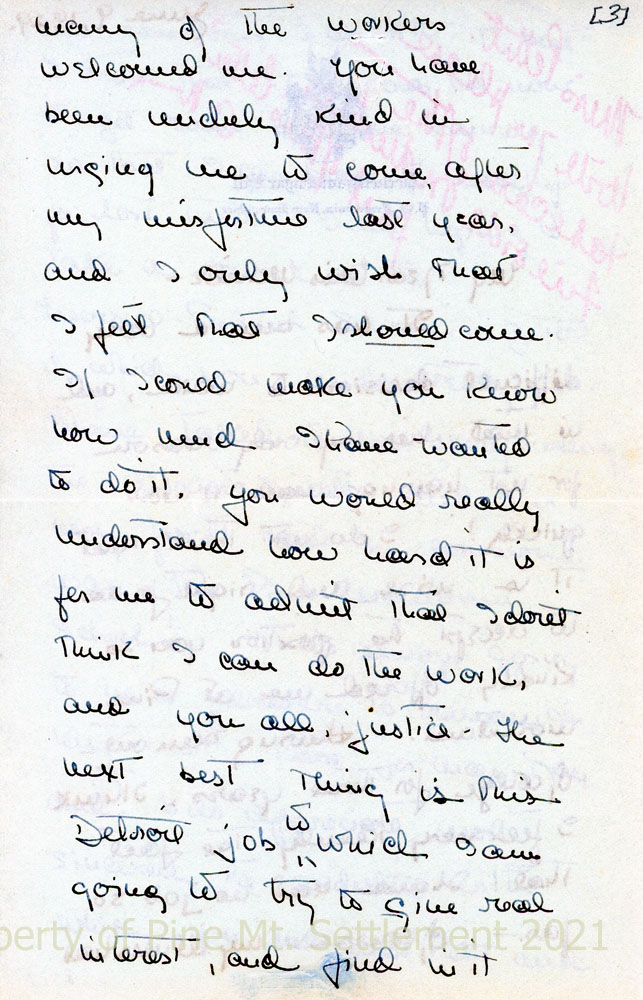 [3]
many of the workers
welcomed me. You have
been unduly kind in
urging me to come, after
my misfortune last year,
and I only wish that
I felt that I should come.
If I could make you know
how much I have wanted
to do it, you would really
understand how hard it is
for me to admit that I don't
think I can do the work,
and you all, justice. The
next best thing is this
Detroit job to which I am
going to try to give real
interest, and find in it
perty of Pine Mt. Settlement 2021